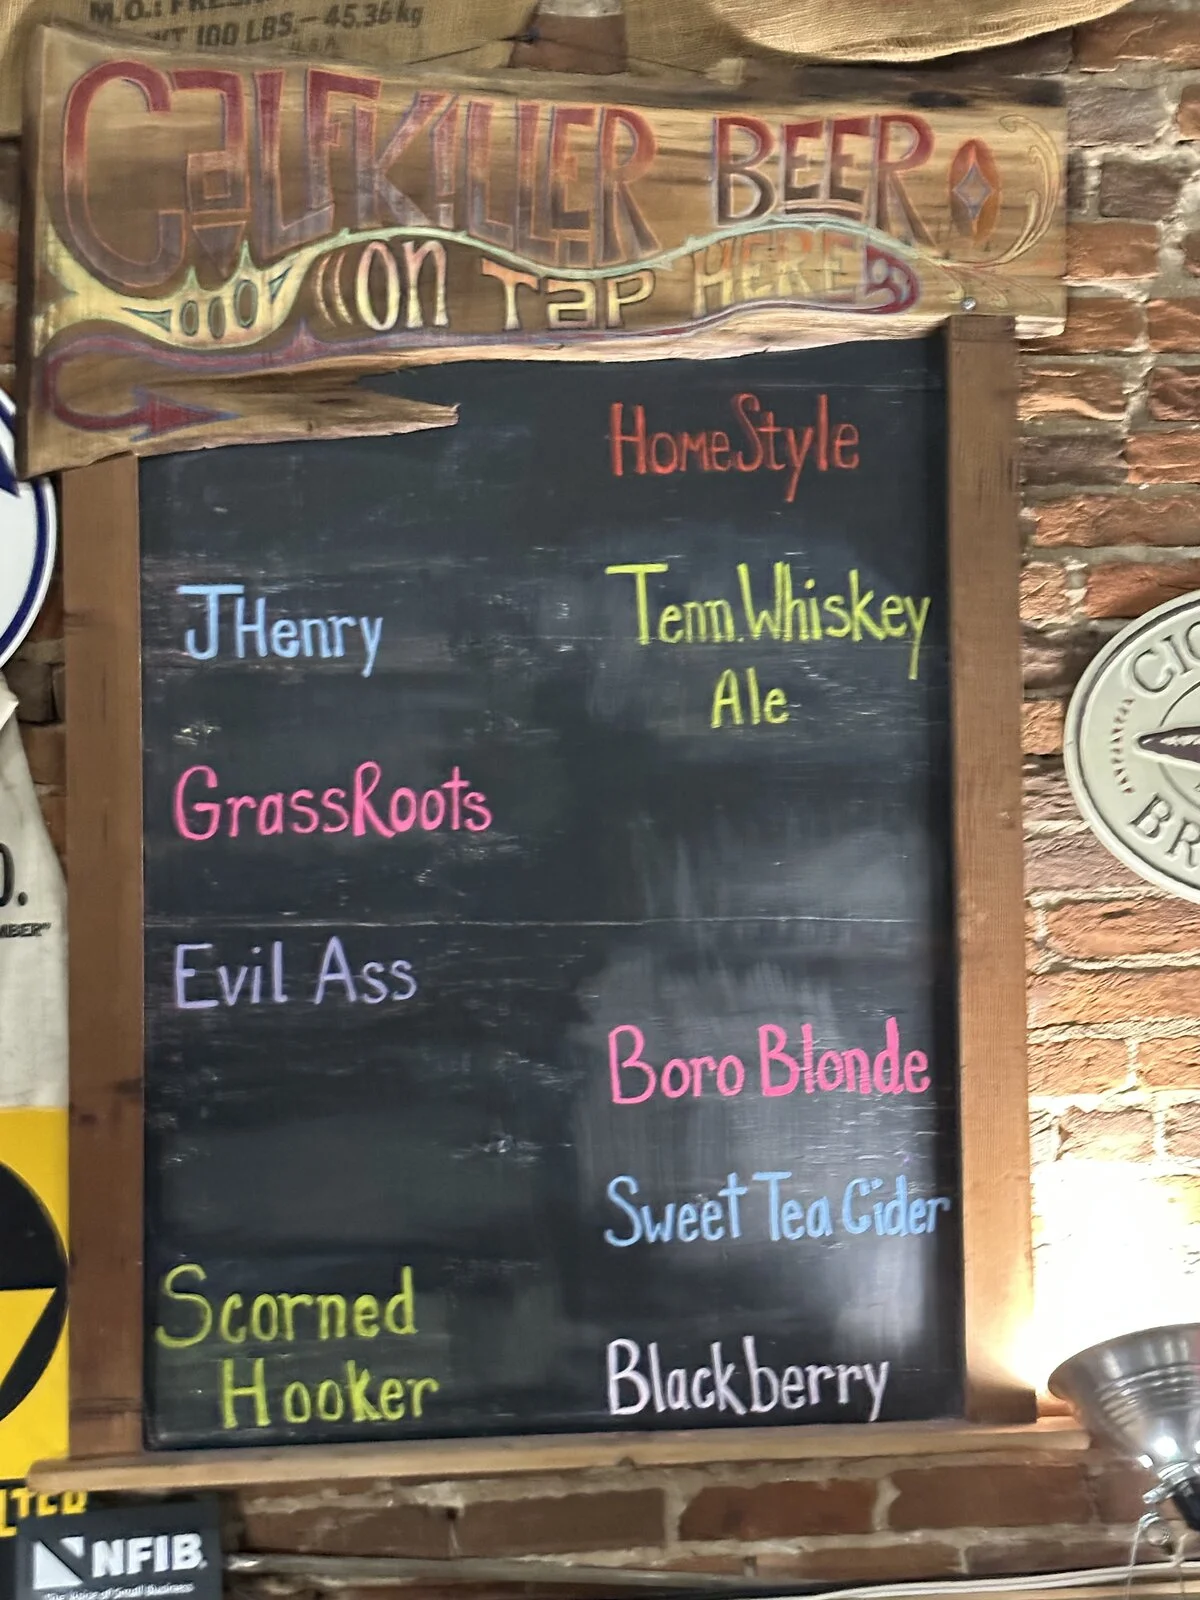 M.O.: FRE
100 LBS.-45.36kg
U.S.A.
CALFKILLER BEER
ON TAP HERE
HomeStyle
JHenry
Tenn. Whiskey
Ale
GrassRoots
Evil Ass
Boro Blonde
Sweet Tea Cider
Scorned
Hooker
Blackberry
CIG
BR
O.
MBER"
LTER
NFIB
The Voice of Small Business